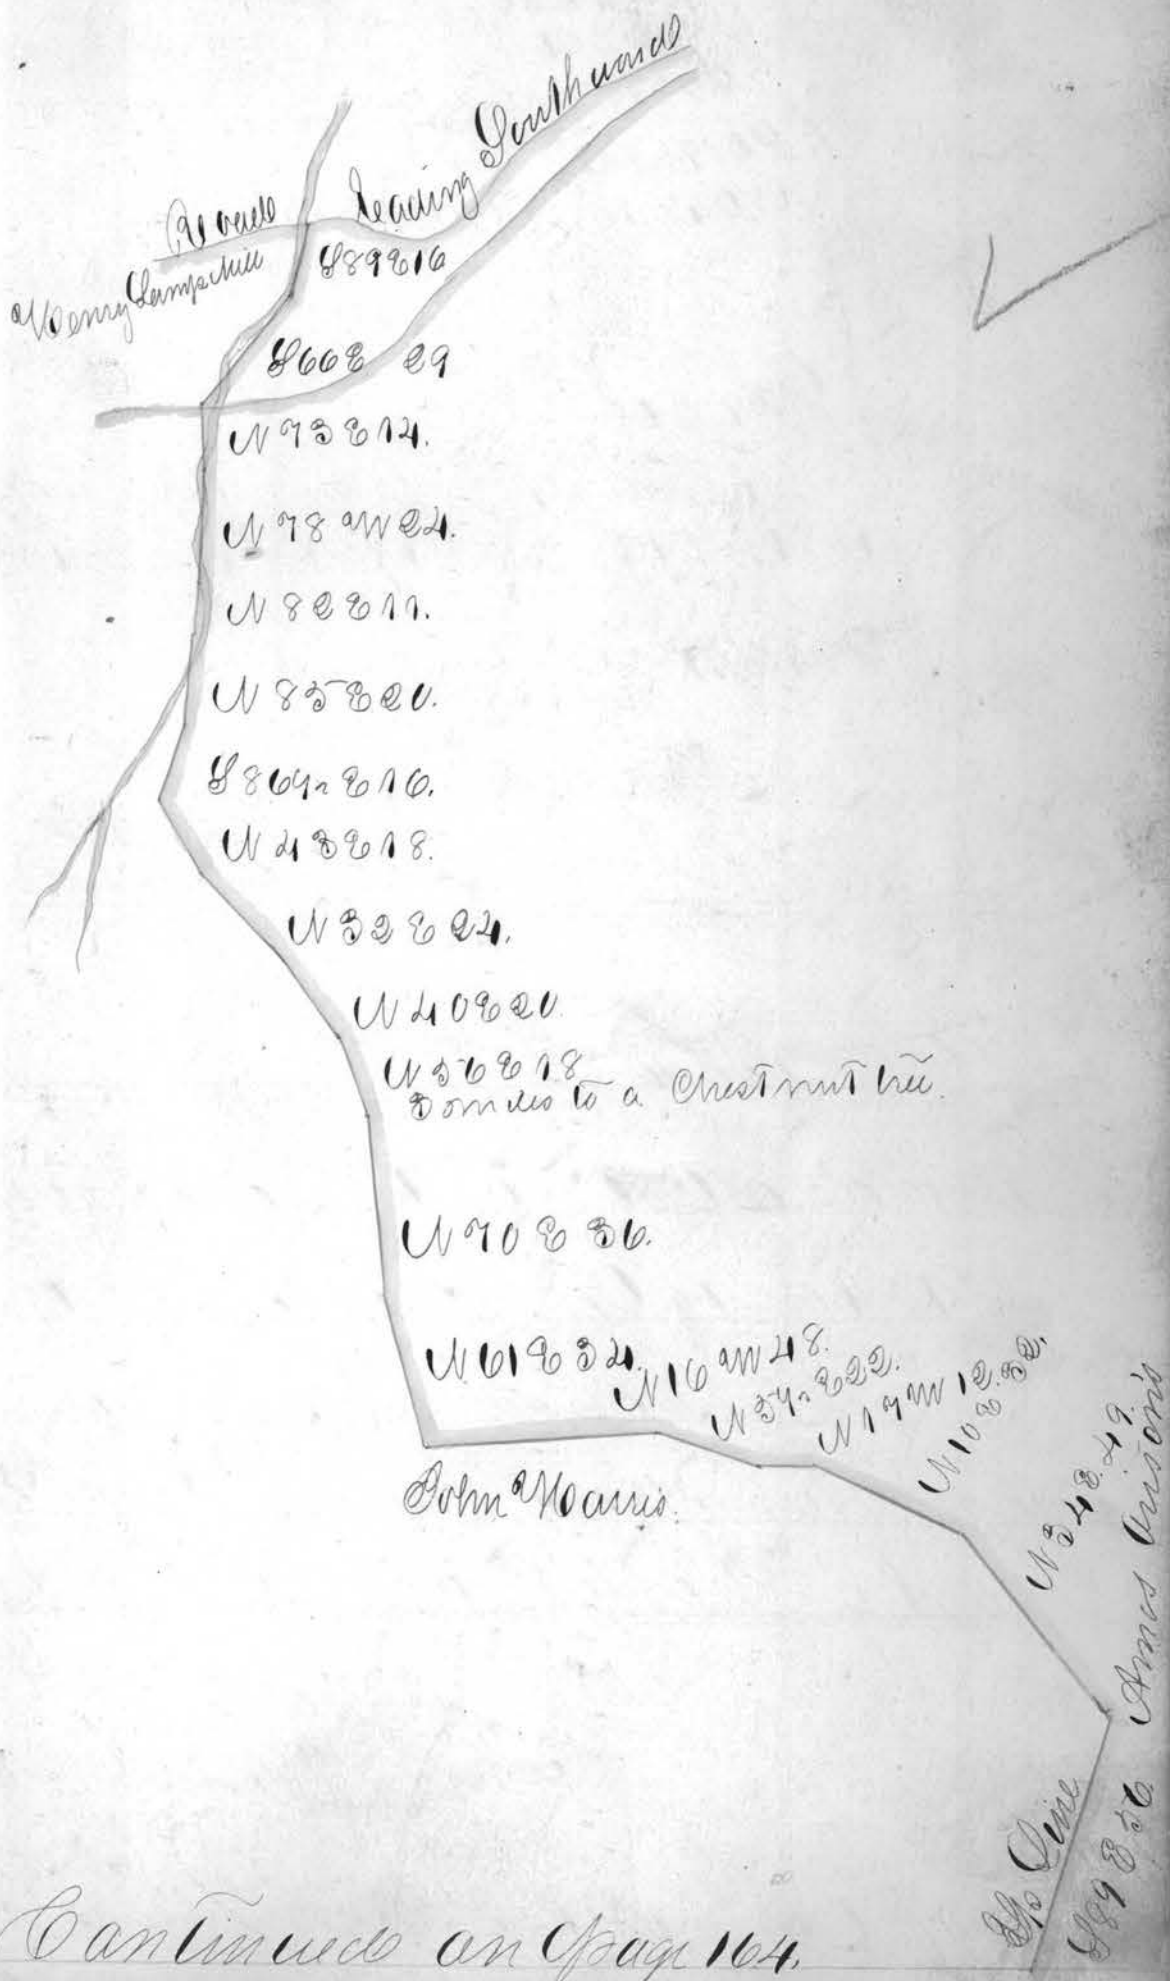 Road leading Southward
Henry Lampshill
S 89 E 16
S 66 E 29
N 73 E 14.
N 78 W 24.
N 82 E 11.
N 85 E 20.
S 86½ E 16.
N 43 E 18.
N 32 E 24.
N 40 E 20.
N 56 E 18
3 miles to a Chestnut tree.
N 70 E 36.
N 61 E 34.
N 16 W 48.
N 5½ E 22.
N 17 W 12.
N 10 E 32.
N 34 E. 49.
John Harris.
Amos
Line
S 89 E 56.
Continued on Page 164.